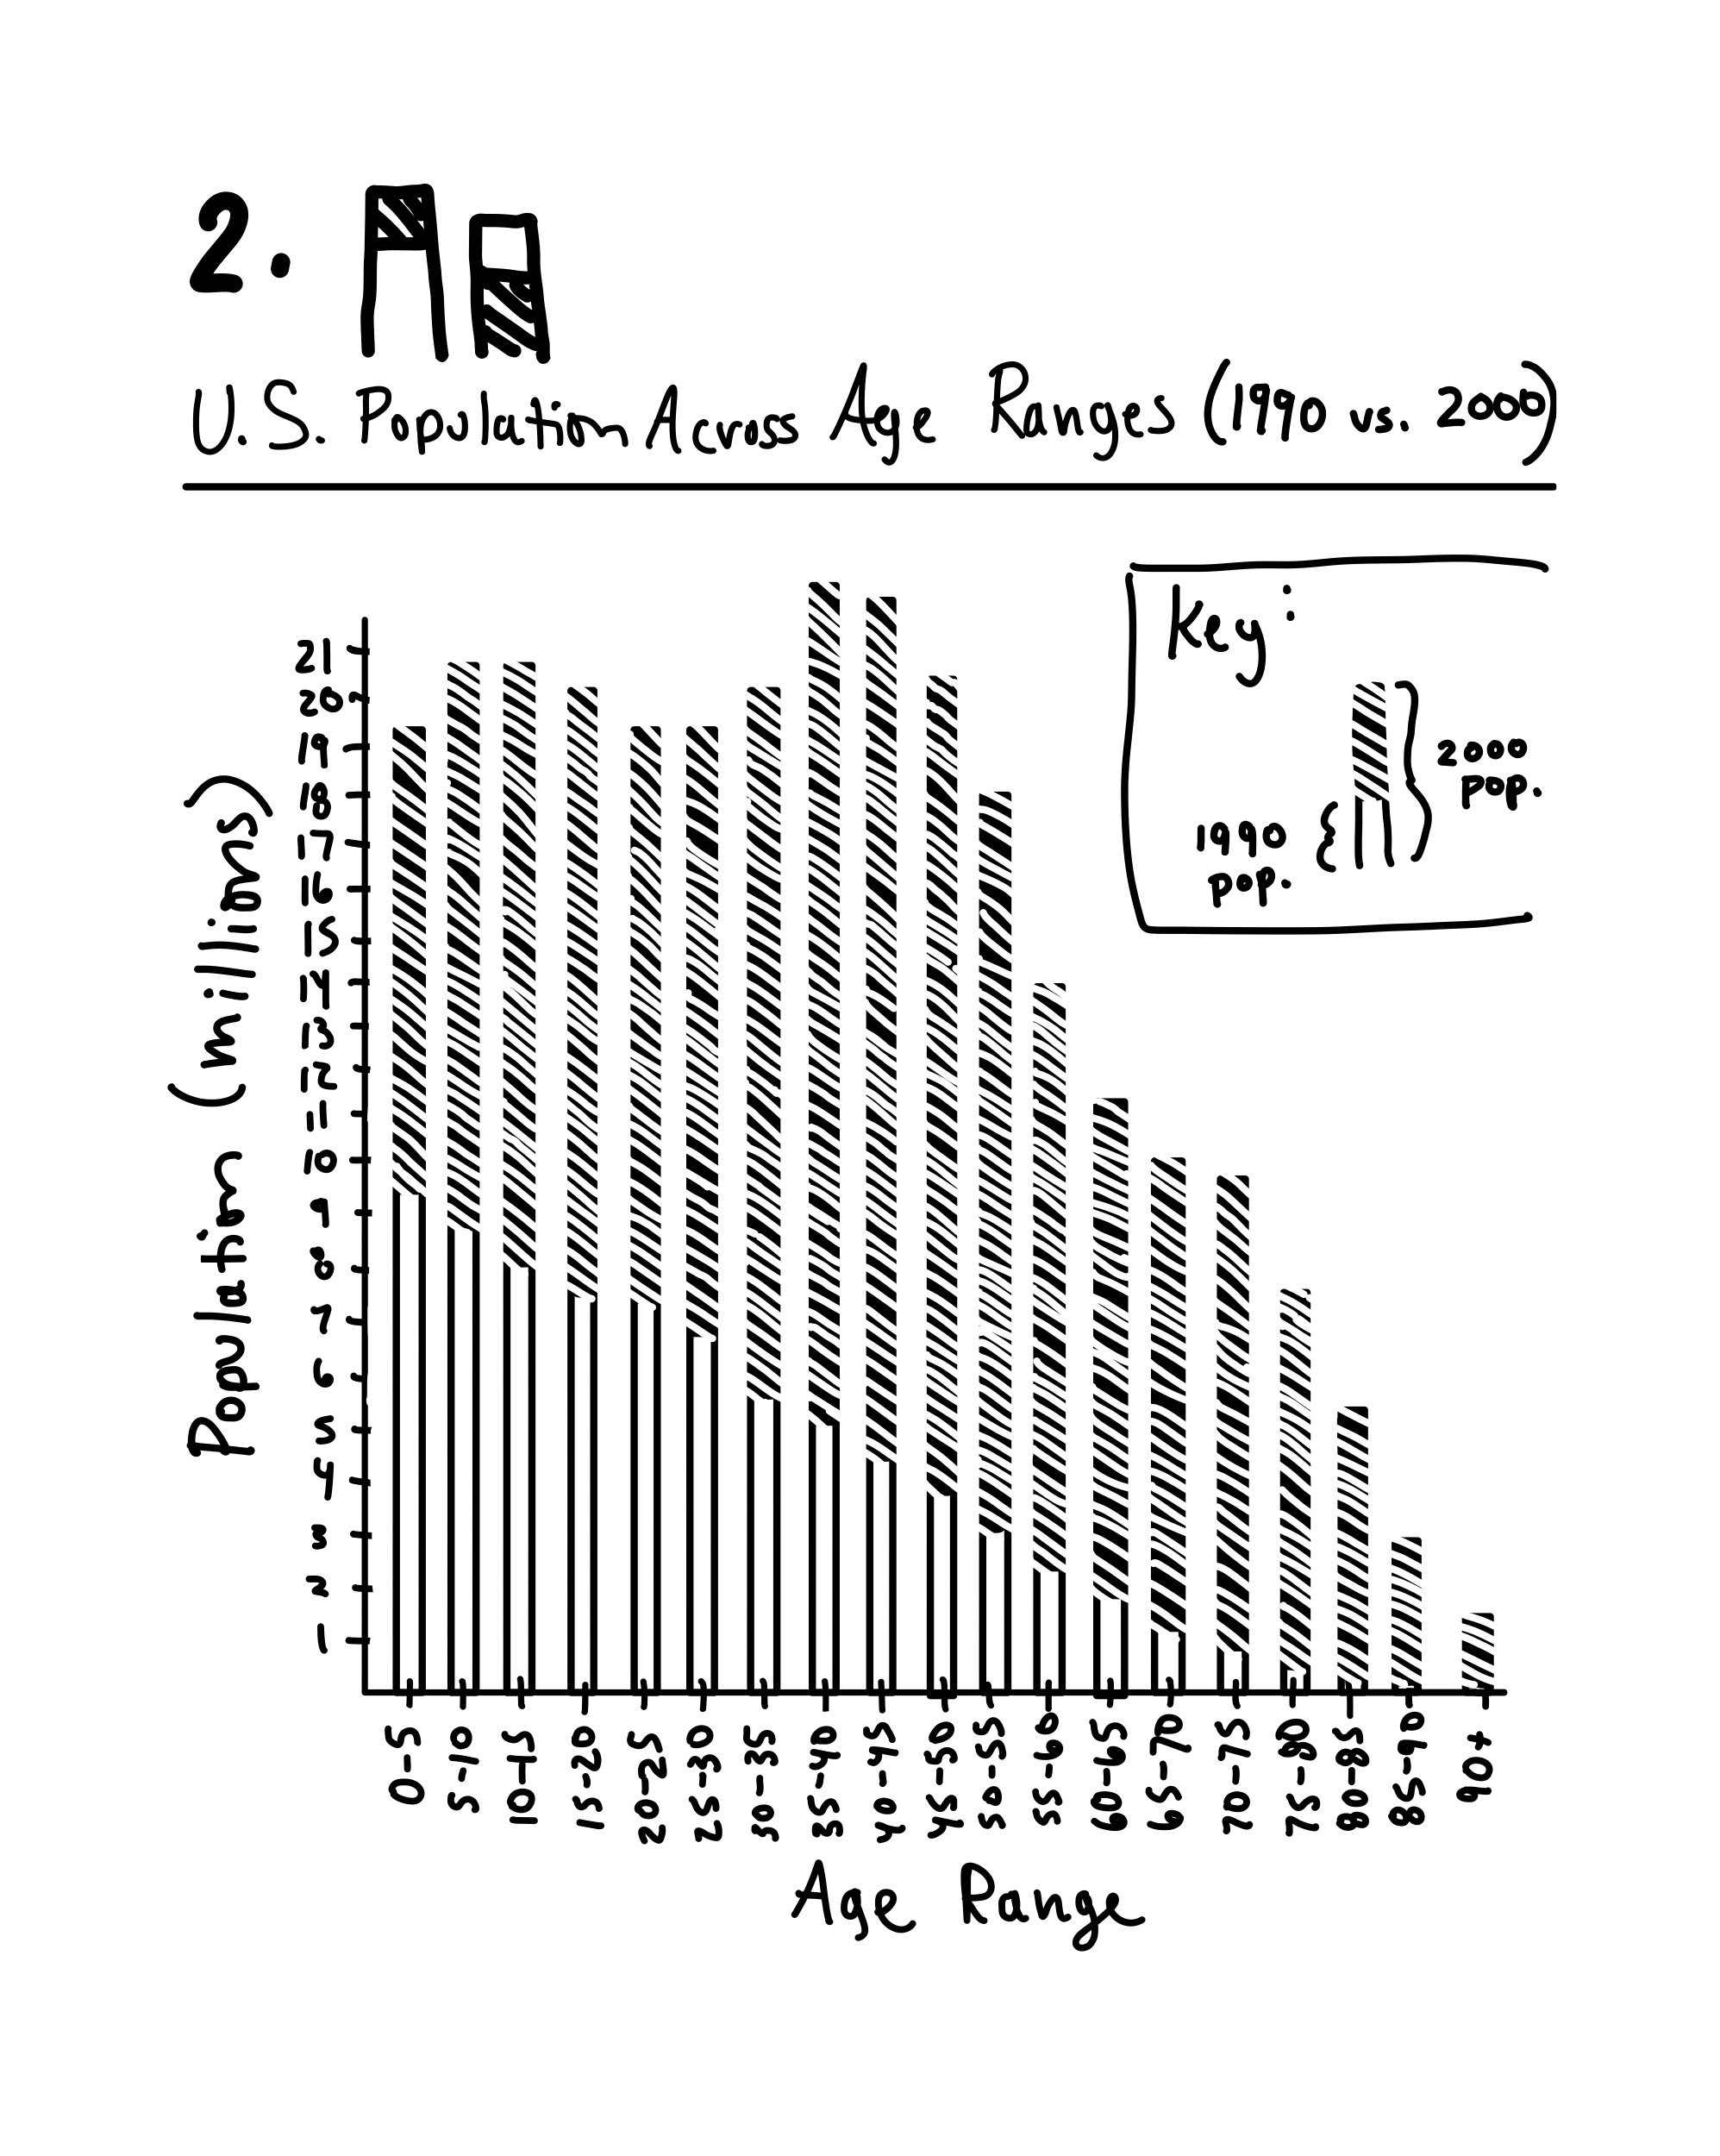 2.
U.S. Population Across Age Ranges (1990 vs. 2000)
Key:
2000
pop.
1990
pop.
Population (millions)
21
20
19
18
17
16
15
14
13
12
11
10
9
8
7
6
5
4
3
2
1
0-5
5-10
10-15
15-20
20-25
25-30
30-35
35-40
40-45
45-50
50-55
55-60
60-65
65-70
70-75
75-80
80-85
85-90
90+
Age Range